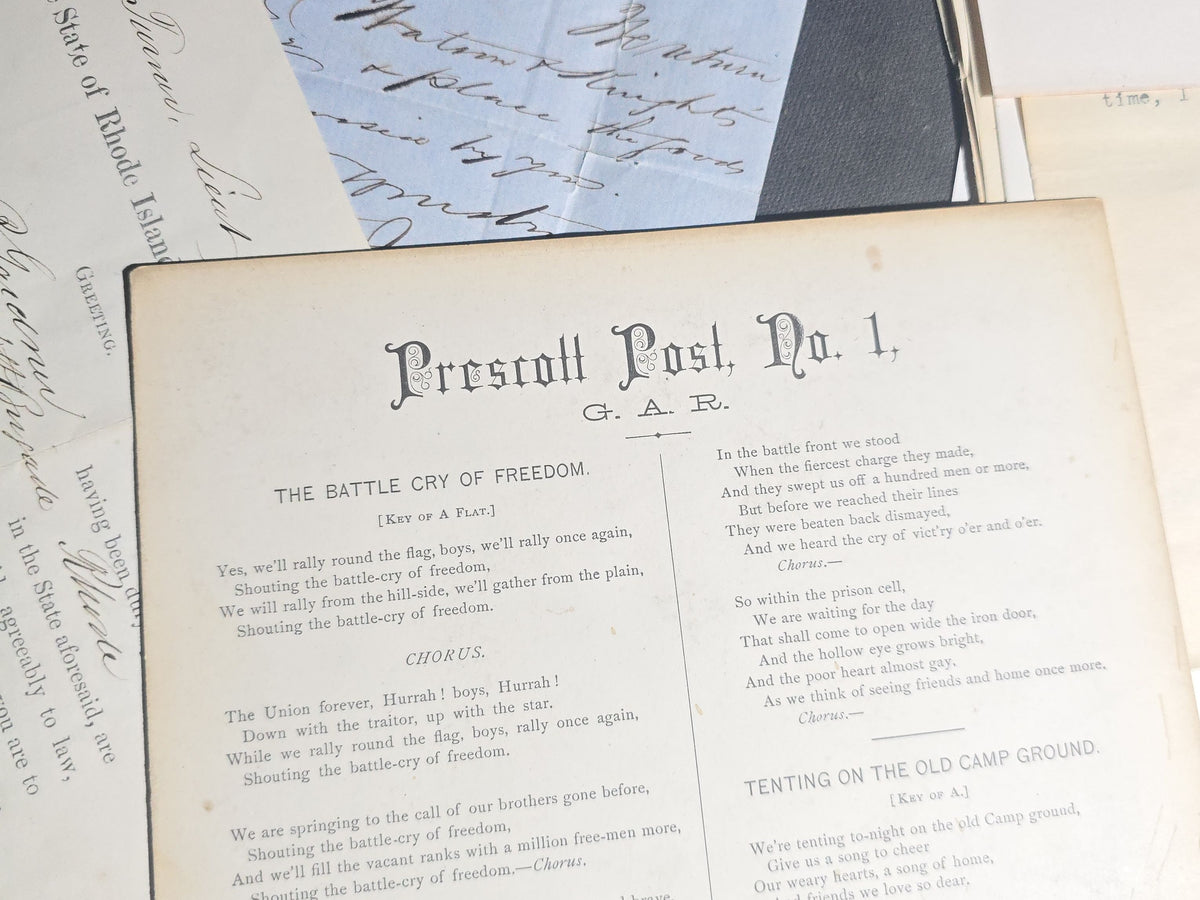 Turner, Lieut
State of Rhode Island
GREETING.
having been duly
in the State aforesaid, are
agreeably to law,
you are to
Return
Watson & Knight's
& place the goods
by you.
time, I
Prescott Post, No. 1,
G. A. R.
THE BATTLE CRY OF FREEDOM.
[KEY OF A FLAT.]
Yes, we'll rally round the flag, boys, we'll rally once again,
Shouting the battle-cry of freedom,
We will rally from the hill-side, we'll gather from the plain,
Shouting the battle-cry of freedom.
CHORUS.
The Union forever, Hurrah! boys, Hurrah!
Down with the traitor, up with the star.
While we rally round the flag, boys, rally once again,
Shouting the battle-cry of freedom.
We are springing to the call of our brothers gone before,
Shouting the battle-cry of freedom,
And we'll fill the vacant ranks with a million free-men more,
Shouting the battle-cry of freedom.—Chorus.
brave,
In the battle front we stood
When the fiercest charge they made,
And they swept us off a hundred men or more,
But before we reached their lines
They were beaten back dismayed,
And we heard the cry of vict'ry o'er and o'er.
Chorus.—
So within the prison cell,
We are waiting for the day
That shall come to open wide the iron door,
And the hollow eye grows bright,
And the poor heart almost gay,
As we think of seeing friends and home once more.
Chorus.—
TENTING ON THE OLD CAMP GROUND.
[KEY OF A.]
We're tenting to-night on the old Camp ground,
Give us a song to cheer
Our weary hearts, a song of home,
friends we love so dear.